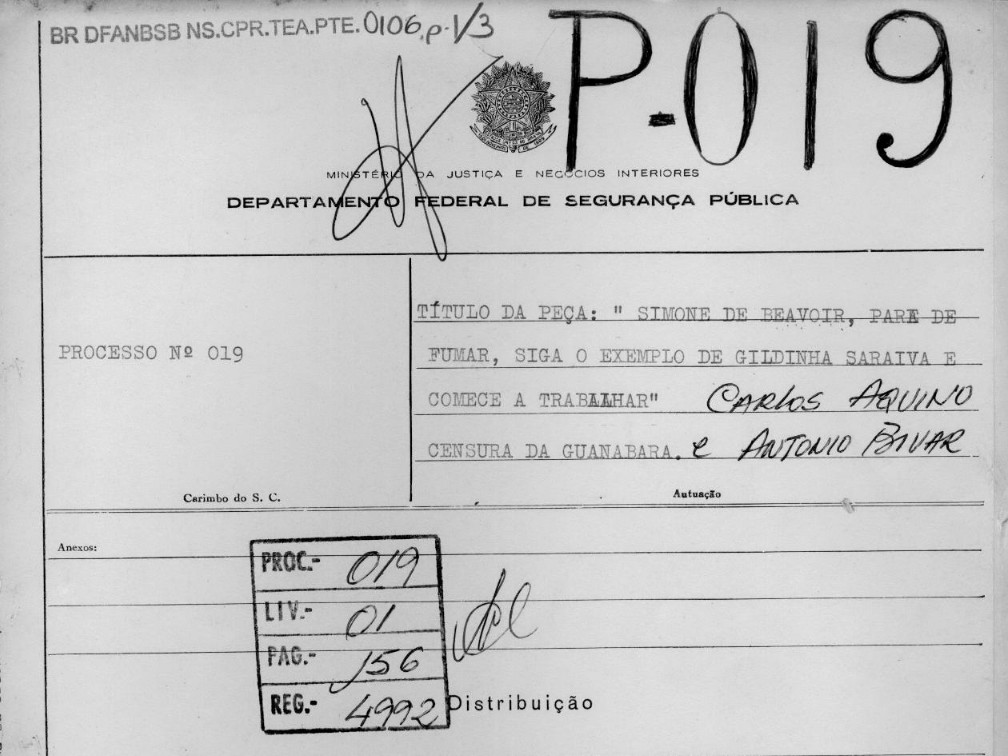 BR DFANBSB NS.CPR.TEA.PTE.0106,p.1/3
P-019
MINISTÉRIO DA JUSTIÇA E NEGÓCIOS INTERIORES
DEPARTAMENTO FEDERAL DE SEGURANÇA PÚBLICA
PROCESSO Nº 019
Carimbo do S. C.
TÍTULO DA PEÇA: " SIMONE DE BEAVOIR, PARE DE
FUMAR, SIGA O EXEMPLO DE GILDINHA SARAIVA E
COMECE A TRABALHAR" CARLOS AQUINO
CENSURA DA GUANABARA. e ANTONIO BIVAR
Autuação
Anexos:
PROC.- 019
LIV.- 01
PAG.- 156
REG.- 4992
Distribuição